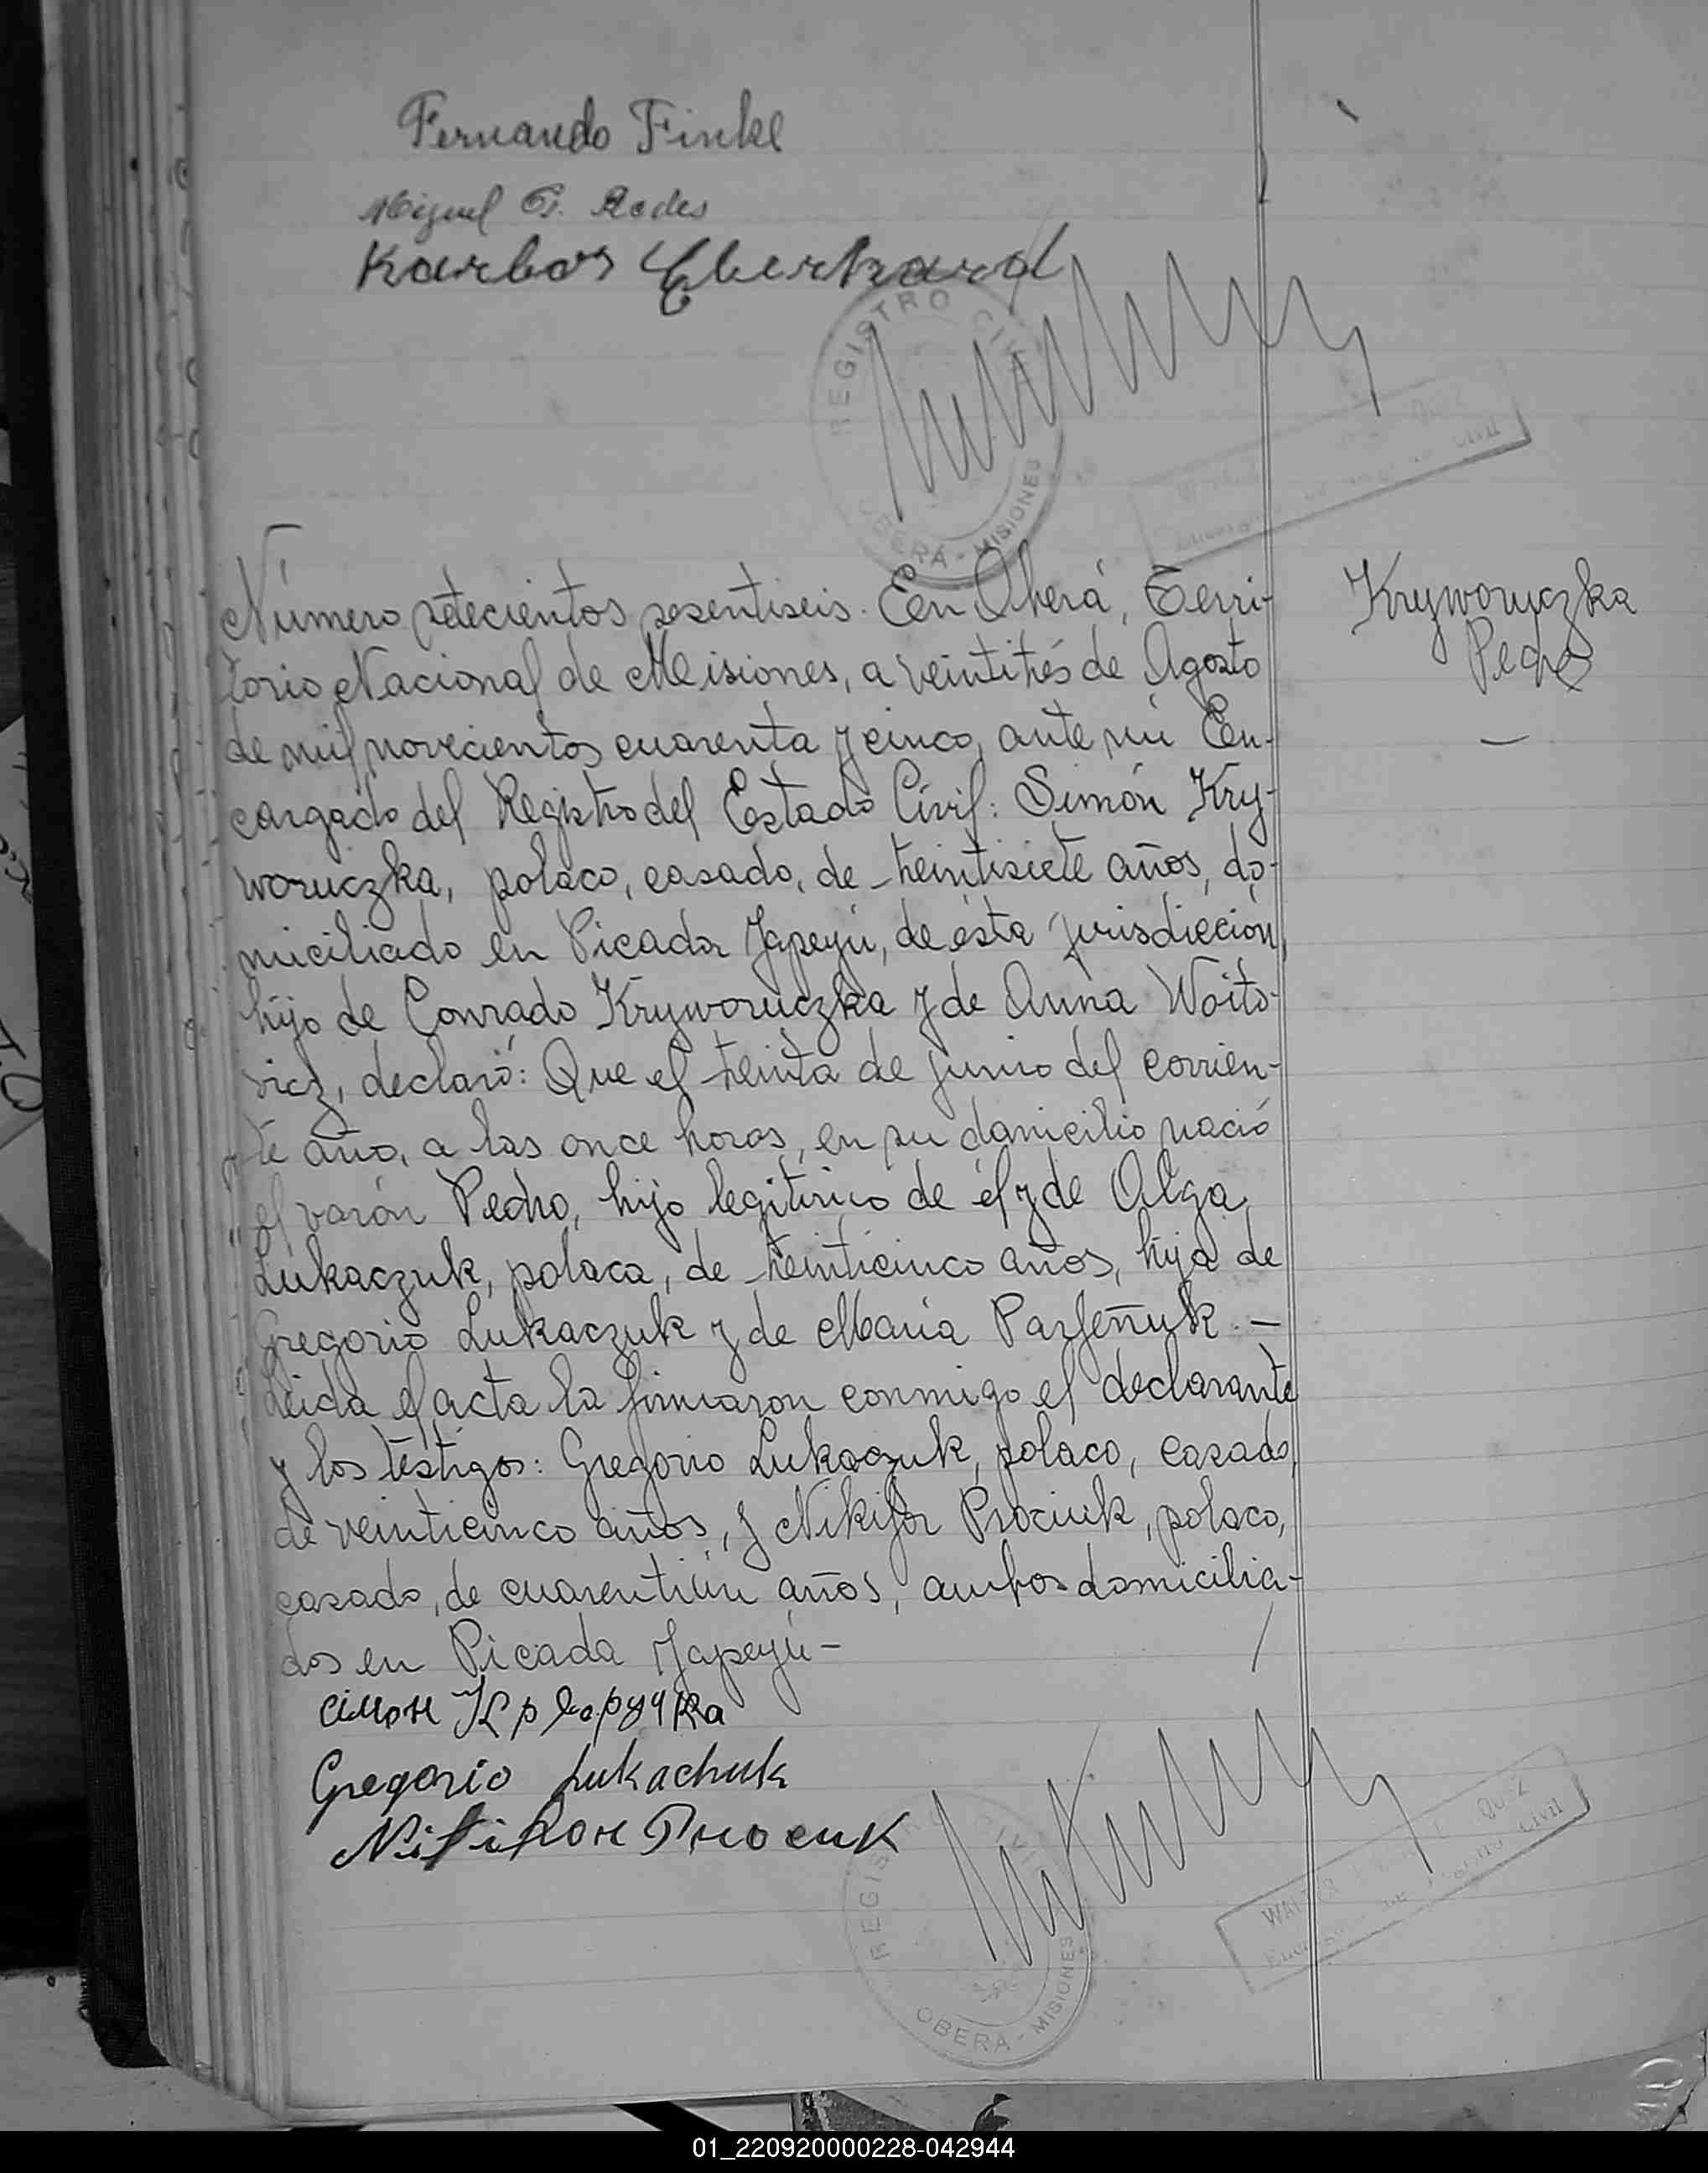 Fernando Finkl
Miguel F. Rodes
Karlos Eberhard
REGISTRO CIVIL
OBERA - MISIONES
Civil
Kryworuczka
Pedro
—
Número setecientos sesentiseis. En Oberá, Terri-
torio Nacional de Misiones, a veintitrés de Agosto
de mil novecientos cuarenta y cinco, ante mi En-
cargado del Registro del Estado Civil: Simón Kry-
woruczka, polaco, casado, de treintisiete años, do-
miciliado en Picada Yapeyú, de ésta jurisdicción,
hijo de Conrado Kryworuczka y de Anna Woito-
vicz, declaró: Que el treinta de junio del corrien-
te año, a las once horas, en su domicilio nació
el varón Pedro, hijo legítimo de él y de Olga
Lukaczuk, polaca, de treinticinco años, hija de
Gregorio Lukaczuk y de María Parfeñuk. —
Leida el acta la firmaron conmigo el declarante
y los testigos: Gregorio Lukaczuk, polaco, casado,
de veinticinco años, y Nikifor Prociuk, polaco,
casado, de cuarentiún años, ambos domicilia-
dos en Picada Yapeyú —
Сімон Крворучка
Gregorio Lukachuk
REGISTRO CIVIL
OBERA - MISIONES
Civil
01_220920000228-042944